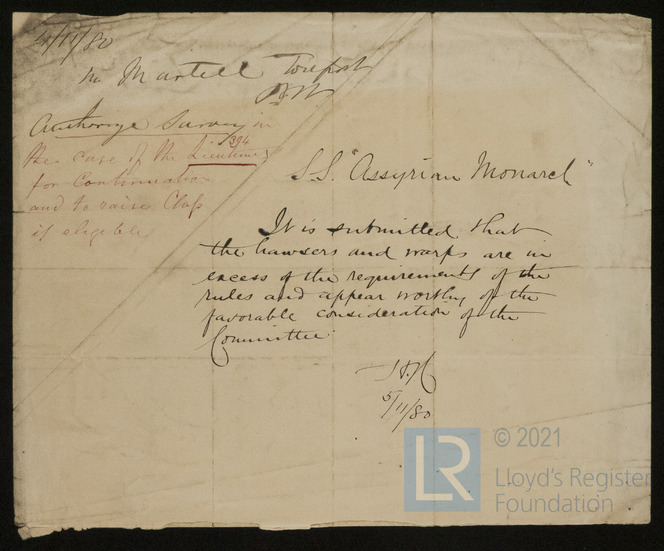 4/11/80
Mr Martell to report
Authorize Survey in
the case of the
for Continuation
and to raise Class
if eligible
S.S. "Assyrian Monarch"
It is submitted that
the hawsers and warps are in
excess of the requirements of the
rules and appear worthy of the
favorable consideration of the
Committee.
5/11/80
LR
© 2021
Lloyd's Register
Foundation